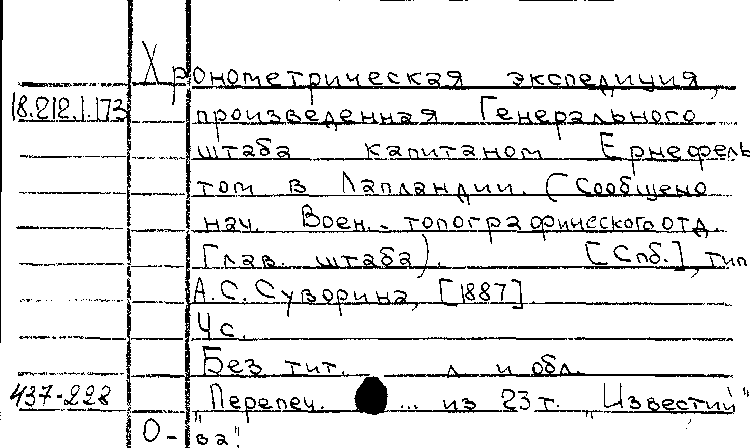 Хронометрическая экспедиция,
18.212.1.173 произведенная Генерального
штаба капитаном Ернефель
том в Лапландии. (Сообщено
нач. Воен.-топографического отд.
Глав. штаба). [Спб.], тип
А.С. Суворина, [1887]
4 с.
Без тит. л и обл.
437-228 Перепеч. ... из 23 т. "Известий"
О- "ва".